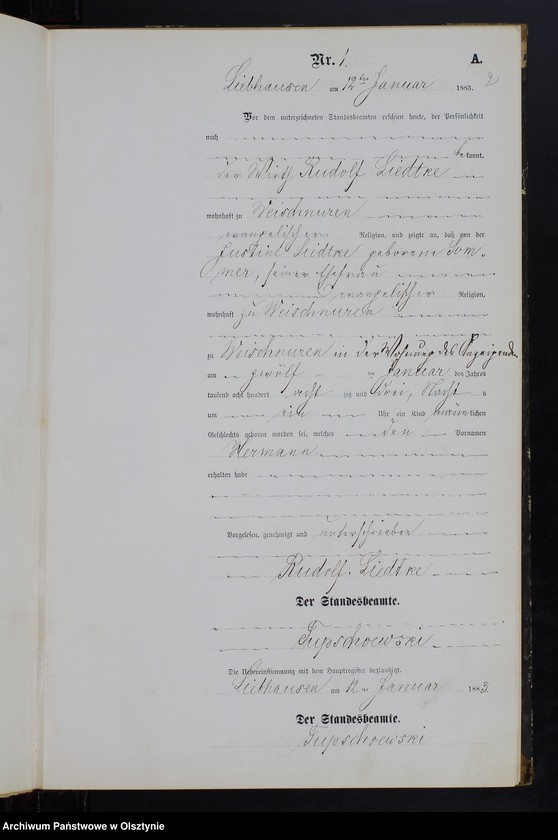 Nr. 1. A.
2
Liebhausen am 12ten Januar 1883.
Vor dem unterzeichneten Standesbeamten erschien heute, der Persönlichkeit
nach
be kannt,
der Wirth Rudolf Liedtke
wohnhaft zu Weischnuren
evangelischer Religion, und zeigte an, daß von der
Justine Liedtke geborene Som-
mer, seiner Ehefrau
evangelischer Religion,
wohnhaft zu Weischnuren
zu Weischnuren in der Wohnung des Anzeigenden
am zwölf ten Januar des Jahres
tausend acht hundert acht zig und drei, Nacht s
um ein Uhr ein Kind männ lichen
Geschlechts geboren worden sei, welches den Vornamen
Hermann
erhalten habe
Vorgelesen, genehmigt und unterschrieben
Rudolf Liedtke
Der Standesbeamte.
Die Uebereinstimmung mit dem Hauptregister beglaubigt.
Liebhausen am 12 ten Januar 1883.
Der Standesbeamte.
Archiwum Państwowe w Olsztynie